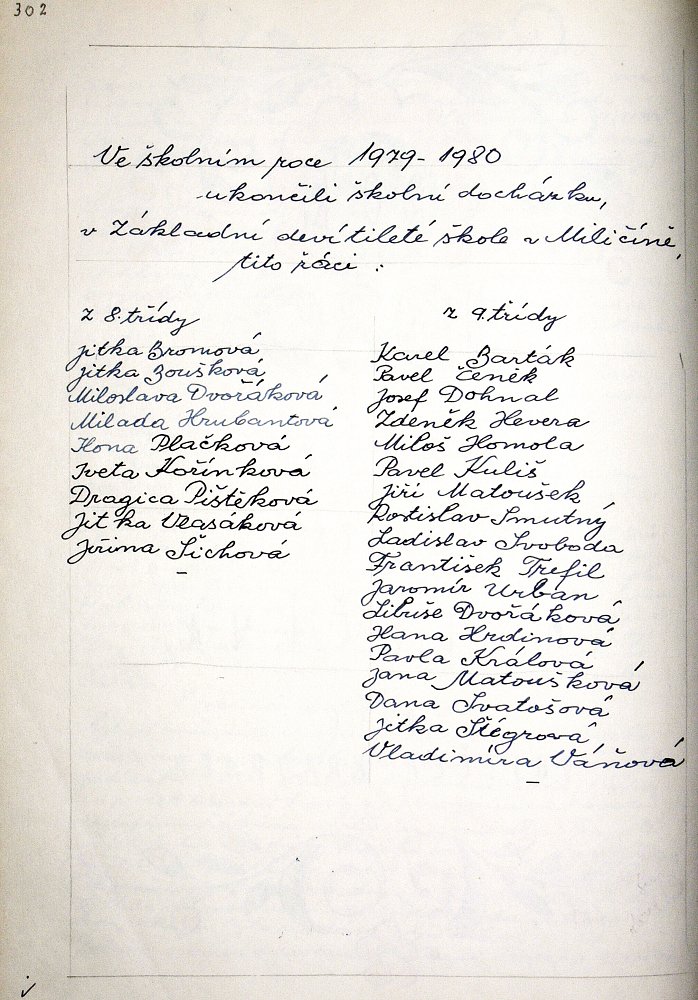 302
Ve školním roce 1979-1980
ukončili školní docházku,
v Základní devítileté škole v Miličíně,
tito žáci :
z 8. třídy
Jitka Bromová
Jitka Boušková
Miloslava Dvořáková
Milada Hrubantová
Ilona Plačková
Iveta Kořínková
Dragica Pištěková
Jitka Vlasáková
Jiřina Šichová
z 9. třídy
Karel Barták
Pavel Čeněk
Josef Dohnal
Zdeněk Hevera
Miloš Homola
Pavel Kuliš
Jiří Matoušek
Rostislav Smutný
Ladislav Svoboda
František Trefil
Jaromír Urban
Libuše Dvořáková
Hana Hrdinová
Pavla Králová
Jana Matoušková
Dana Svatošová
Jitka Štégrová
Vladimíra Váňová